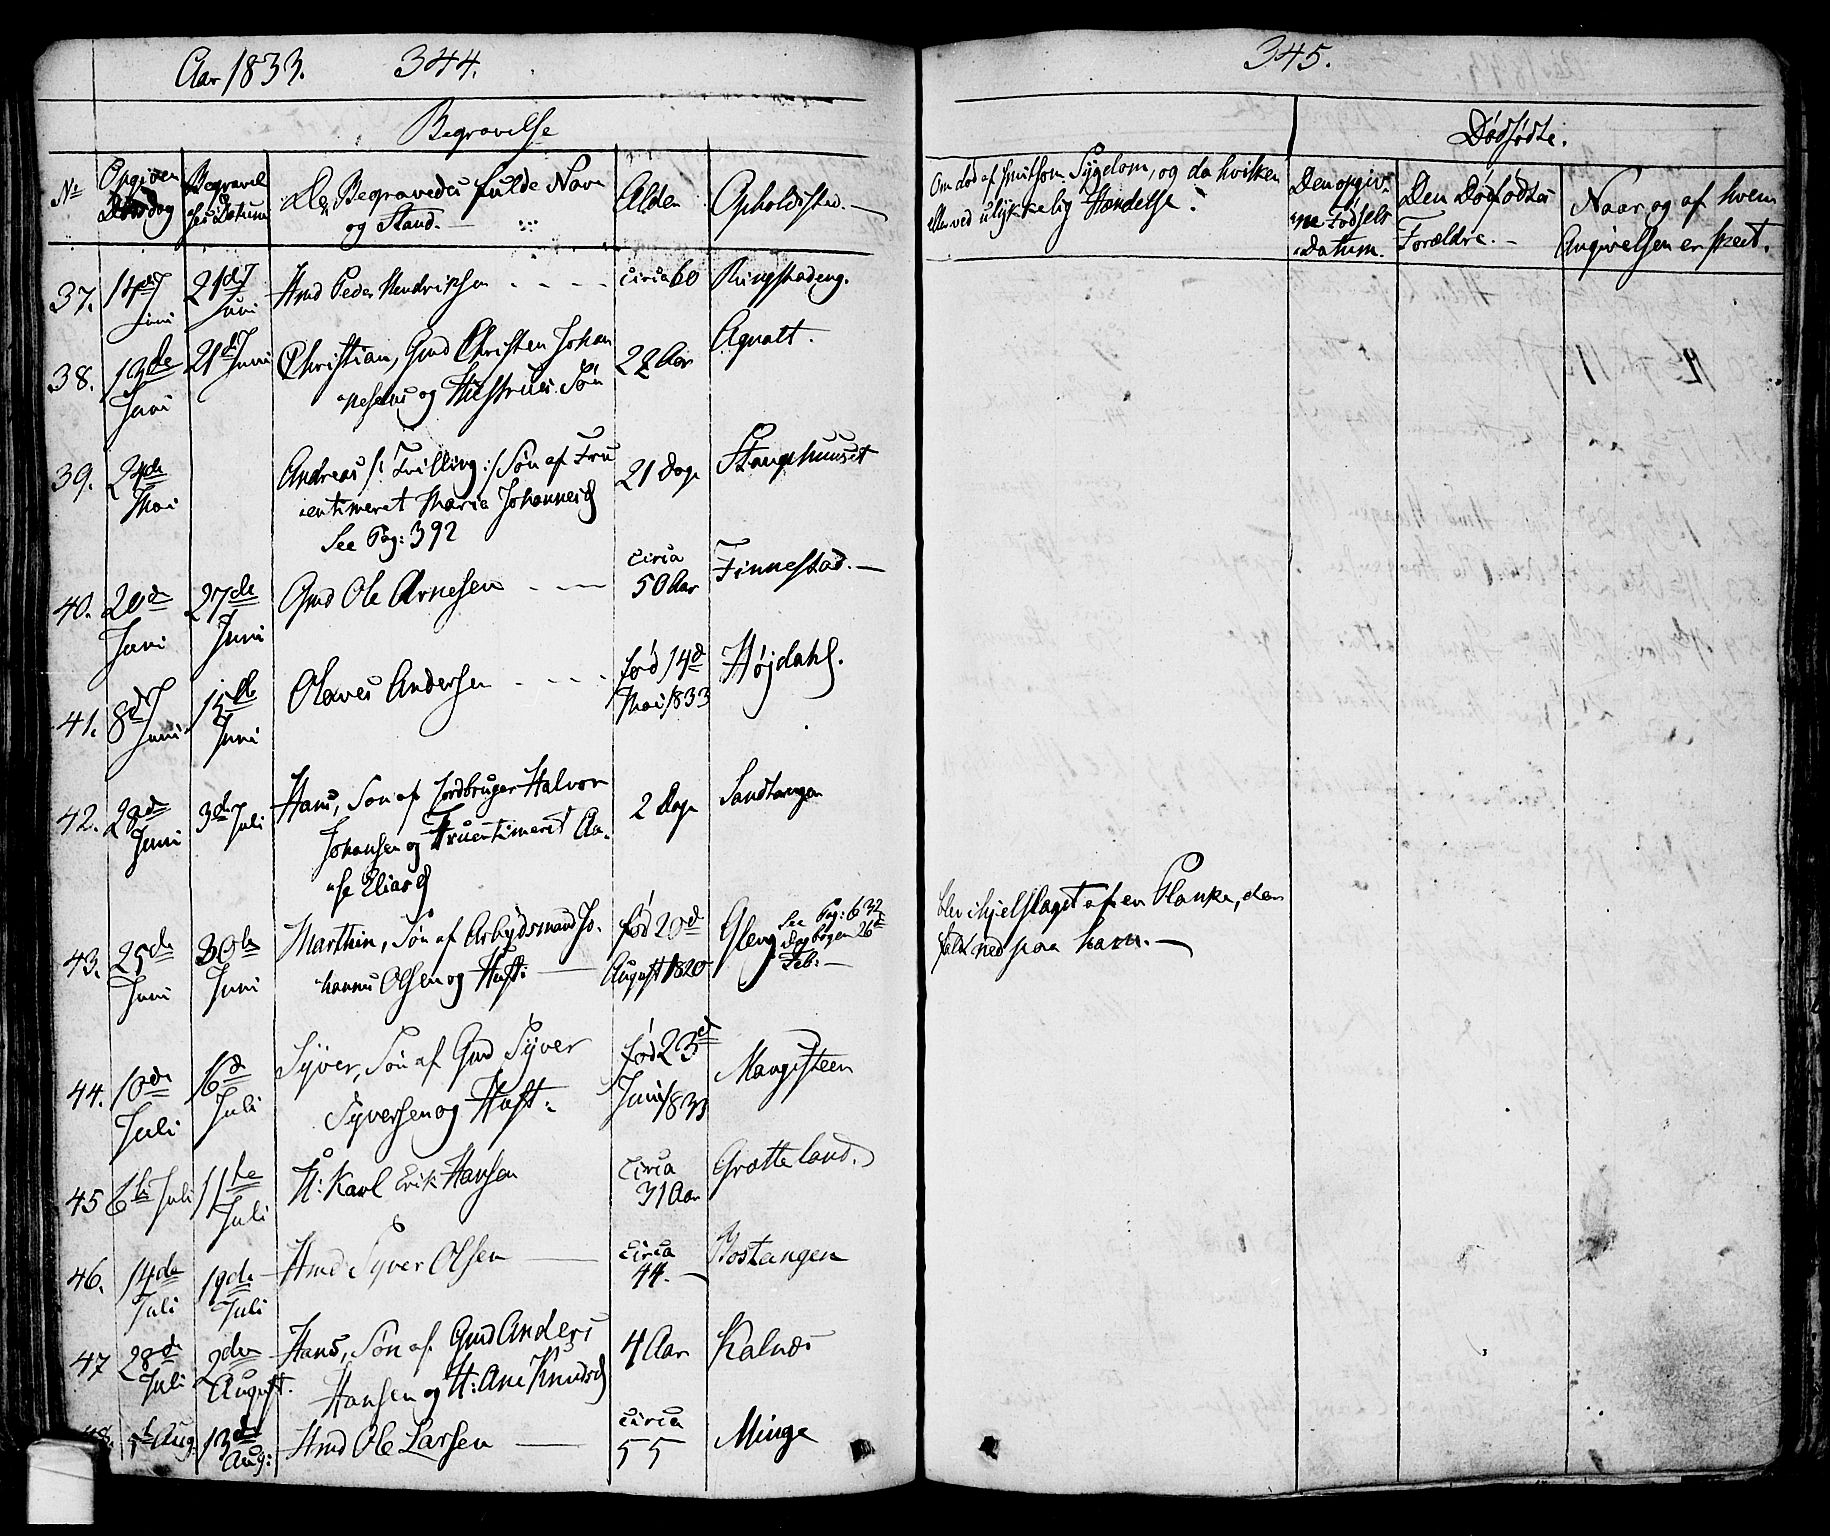 Aar 1833. 344.
Begravelse
No Opgiven Dødsdag Begravelsesdatum Den Begravedes fulde Navn og Stand. Alder Opholdssted.
37. 14de Juni 21de Juni Hmd Peder Hendriksen circa 60 Ringstadeng.
38. 13de Juni 21de Juni Christian, Gmd Christen Johan
nesens og Hustrues Søn 22 Aar Agnalt.
39. 24de Mai Andreas /: Trilling :/ Søn af Fru
entimeret Maria Johannesd 21 Dage Stangehuuset
See Pag: 392
40. 20de Juni 27de Juni Gmd Ole Arnesen circa 50 Aar Finnestad.
41. 8de Juni 15de Juni Olaves Andersen fød 14de Mai 1833 Højdahl.
42. 28de Juni 3de Juli Hans, Søn af Jordbruger Halvor
Johansen og Fruentimeret Aa-
se Eliasd 2 Dage Sandtangen
43. 25de Juni 30te Juni Marthin, Søn af Arbeydsmand Jo-
hannes Olsen og Hust: fød 20de August 1820 Gleng See Pag: 632 Dagbogen 26de Feb:
44. 10de Juli 16de Juli Syver, Søn af Gmd Syver
Syversen og Hust: fød 23de Juni 1833 Mangesteen
45 6te Juli 11te Juli H: Karl Erik Hansen circa 31 Aar Gratteland.
46. 14de Juli 19de Juli Hmd Syver Olsen circa 44. Bostangen
47 28de Juli 2den August. Hans, Søn af Gmd Anders
Hansen og H: Ane Knudsd 4 Aar Kalnæs
48. Aug 13de Aug: Hmd Ole Larsen circa 55 Minge
345.
Dødfødte.
Om død af Sygdom, og da hvilken
eller ved ulykkelig Hændelse?
Den opgivne Fødsels Datum. Den Dødfødtes Forældre. Naar og af hvem Angivelsen er skeet.
blev ihjelslaget af en Planke, der
faldt ned paa ham.